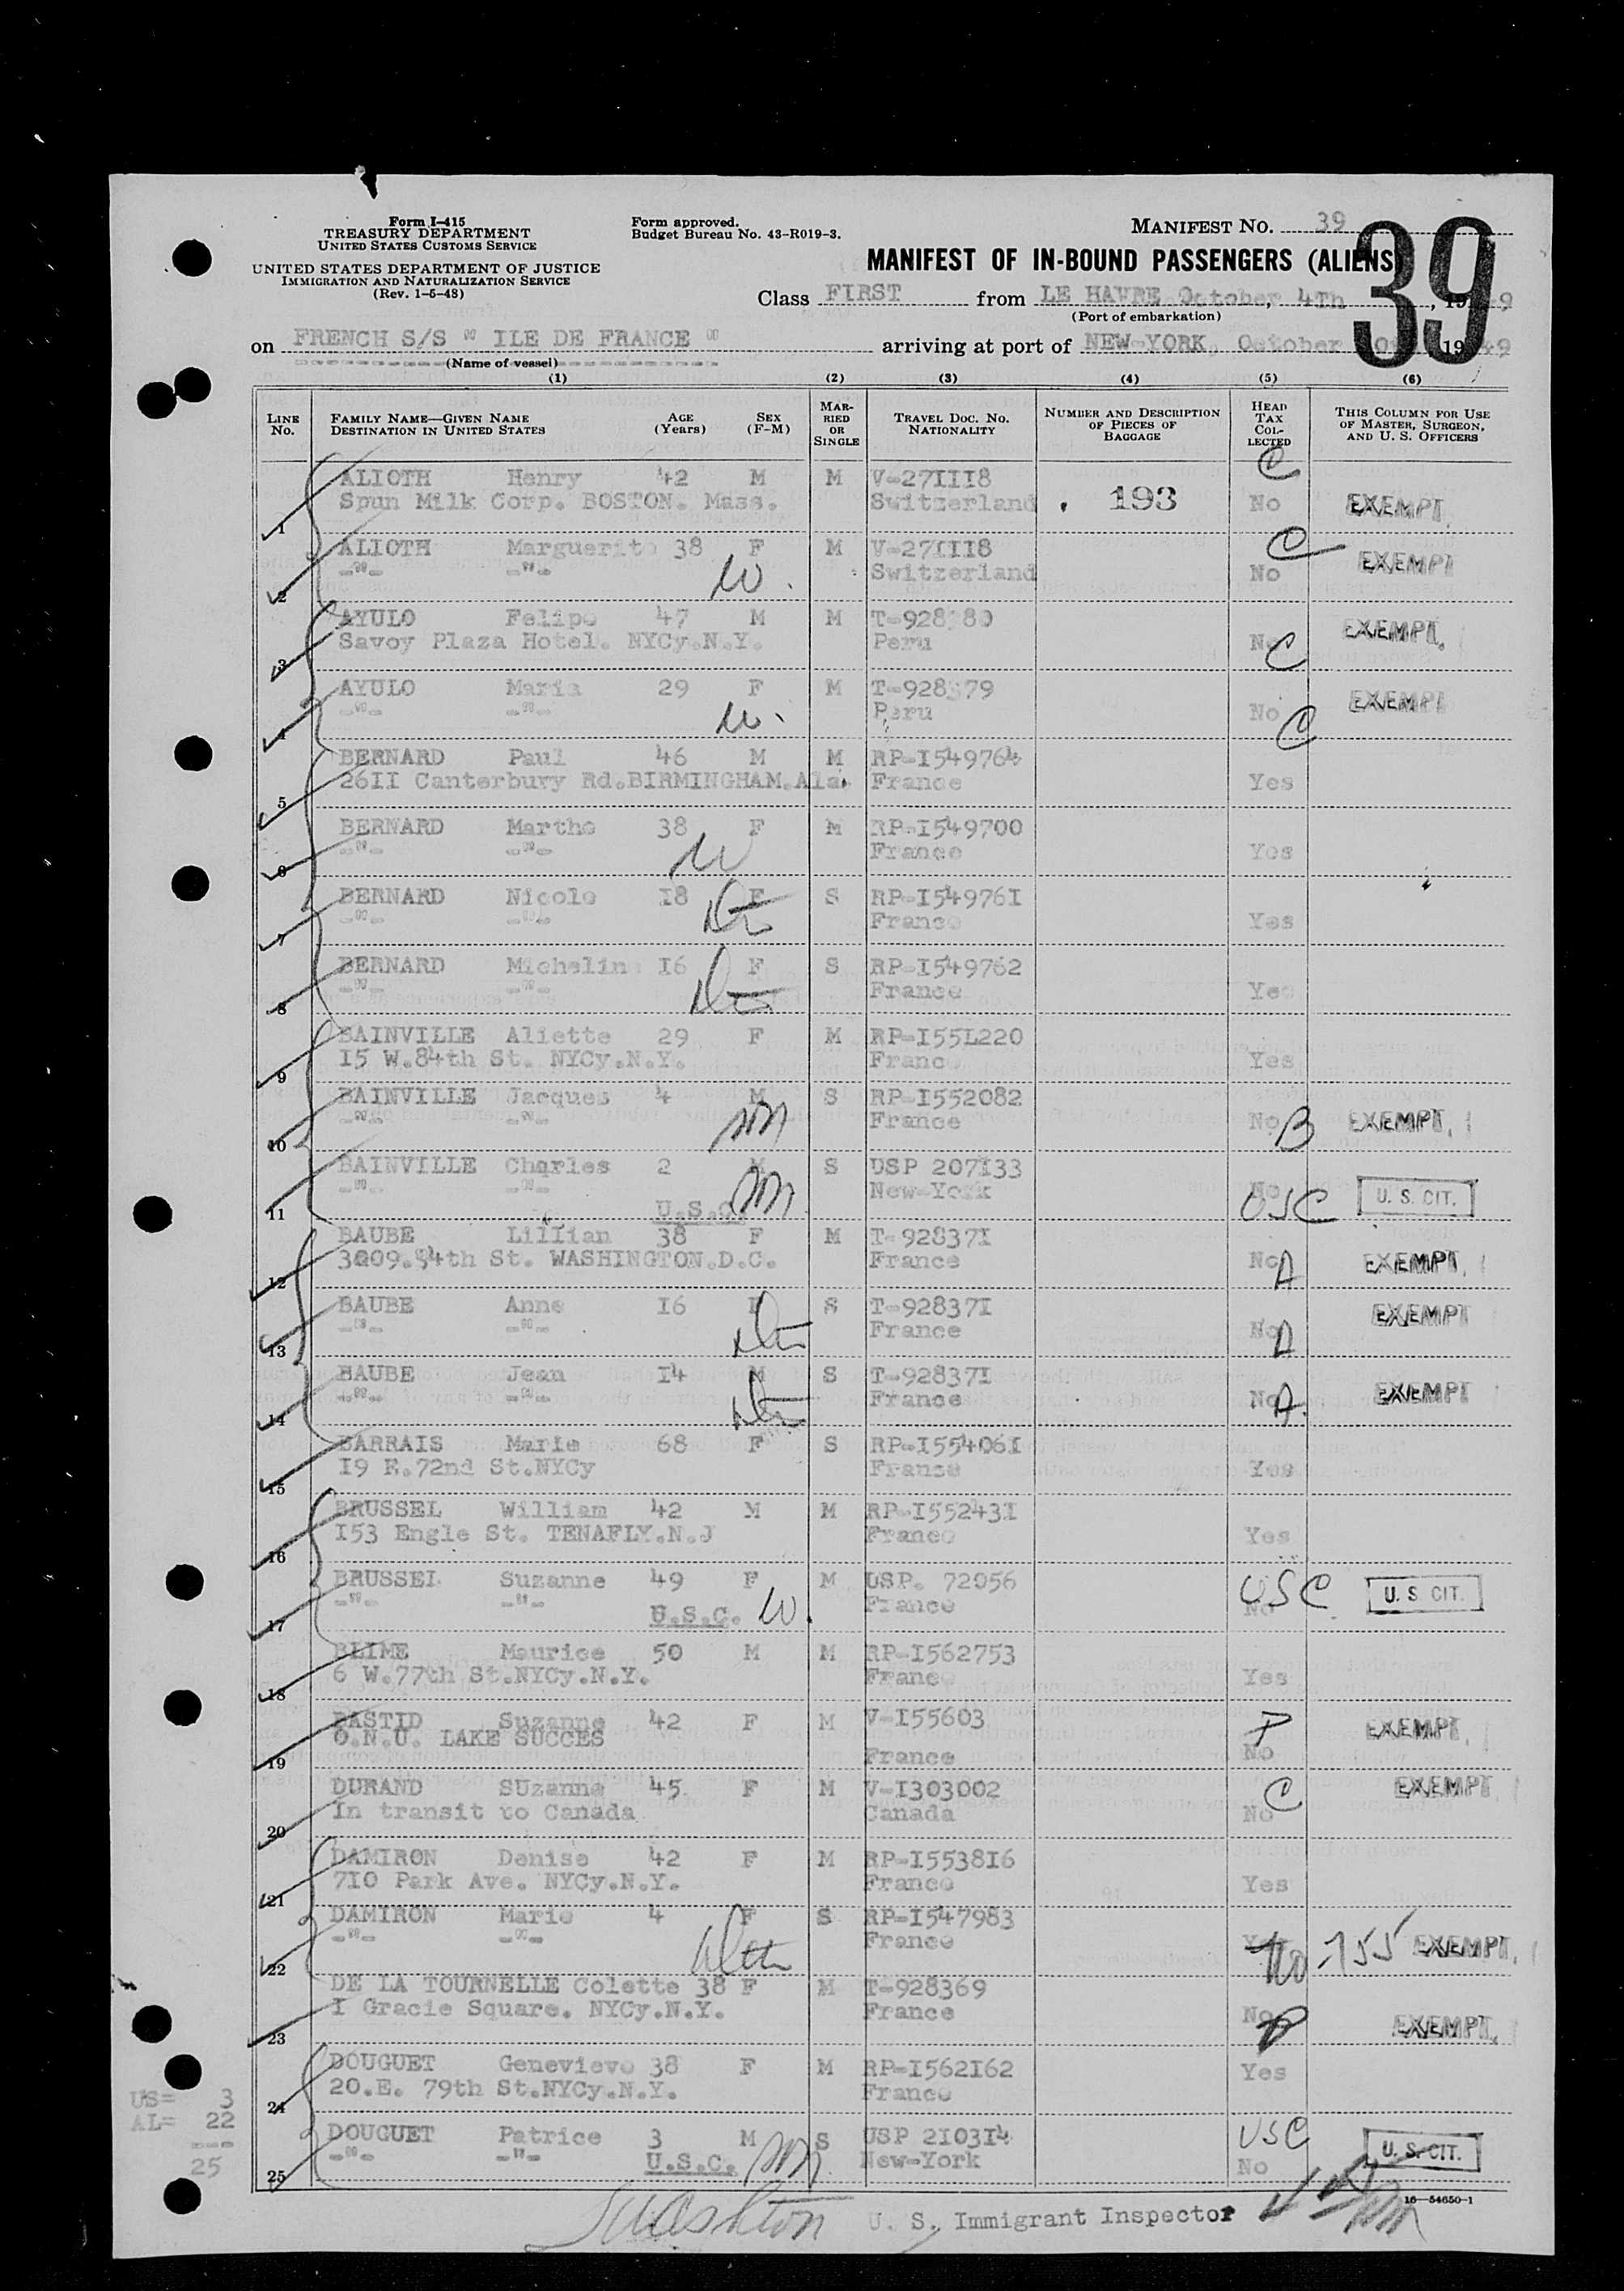 Form I-415
TREASURY DEPARTMENT
UNITED STATES CUSTOMS SERVICE
UNITED STATES DEPARTMENT OF JUSTICE
IMMIGRATION AND NATURALIZATION SERVICE
(Rev. 1-5-48)
Form approved.
Budget Bureau No. 43-R019-3.
MANIFEST NO. 39
39
MANIFEST OF IN-BOUND PASSENGERS (ALIENS)
Class FIRST from LE HAVRE October, 4Th, 1949
(Port of embarkation)
on FRENCH S/S " ILE DE FRANCE " arriving at port of NEW-YORK, October 1949
(Name of vessel)
(1) (2) (3) (4) (5) (6)
LINE No. FAMILY NAME—GIVEN NAME DESTINATION IN UNITED STATES AGE (Years) SEX (F-M) MARRIED OR SINGLE TRAVEL DOC. NO. NATIONALITY NUMBER AND DESCRIPTION OF PIECES OF BAGGAGE HEAD TAX COLLECTED THIS COLUMN FOR USE OF MASTER, SURGEON, AND U. S. OFFICERS
ALIOTH Henry 42 M M V-27III8 C
1 Spun Milk Corp. BOSTON. Mass. Switzerland 193 No EXEMPT.
ALIOTH Marguerite 38 F M V-27III8 C EXEMPT
2 -"- -"- W. Switzerland No
AYULO Felipe 47 M M T-928380 EXEMPT.
3 Savoy Plaza Hotel. NYCy.N.Y. Peru No C
AYULO Maria 29 F M T-928379 EXEMPT
4 -"- -"- W. Peru No C
BERNARD Paul 46 M M RP-I549764
5 26II Canterbury Rd.BIRMINGHAM.Ala. France Yes
BERNARD Marthe 38 F M RP-I549700
6 -"- -"- W France Yes
BERNARD Nicole I8 F S RP-I54976I
7 -"- -"- France Yes
BERNARD Micheline I6 F S RP-I549762
8 -"- -"- France Yes
BAINVILLE Aliette 29 F M RP-I55L220
9 I5 W.84th St. NYCy.N.Y. France Yes
BAINVILLE Jacques 4 M S RP-I552082
10 -"- -"- son France No B EXEMPT.
BAINVILLE Charles 2 M S USP 207I33
11 -"- -"- U.S.C. son New-York No USC U. S. CIT.
BAUBE Lillian 38 F M T-92837I
12 3009.34th St. WASHINGTON.D.C. France No A EXEMPT.
BAUBE Anne I6 F S T-92837I EXEMPT
13 -"- -"- France No A
BAUBE Jean I4 M S T-92837I
14 -"- -"- France No A. EXEMPT
BARRAIS Marie 68 F S RP-I55406I
15 I9 E.72nd St.NYCy France Yes
BRUSSEL William 42 M M RP-I55243I
16 I53 Engle St. TENAFLY.N.J France Yes
BRUSSEL Suzanne 49 F M USP. 72056 USC U. S. CIT.
17 -"- -"- U.S.C. W. France No
BLIME Maurice 50 M M RP-I562753
18 6 W.77th St.NYCy.N.Y. France Yes
BASTID Suzanne 42 F M V-I55603 P EXEMPT.
19 O.N.U. LAKE SUCCES France No
DURAND SUzanne 45 F M V-I303002 C EXEMPT.
20 In transit to Canada Canada No
DAMIRON Denise 42 F M RP-I5538I6
21 7I0 Park Ave. NYCy.N.Y. France Yes
DAMIRON Marie 4 F S RP-I547983
22 -"- -"- France Yes No -155 EXEMPT.
DE LA TOURNELLE Colette 38 F M T-928369
23 I Gracie Square. NYCy.N.Y. France No P EXEMPT.
DOUGUET Genevieve 38 F M RP-I562I62 Yes
24 20.E. 79th St.NYCy.N.Y. France
DOUGUET Patrice 3 M S USP 2I03I4 USC
25 -"- -"- U.S.C. son New-York No U. S. CIT.
US= 3
AL= 22
---
25
U. S. Immigrant Inspector
16—54650-1